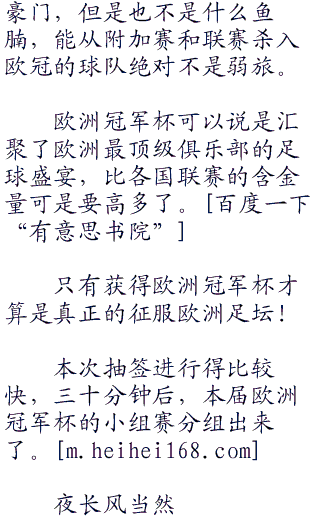 豪门，但是也不是什么鱼
腩，能从附加赛和联赛杀入
欧冠的球队绝对不是弱旅。
欧洲冠军杯可以说是汇
聚了欧洲最顶级俱乐部的足
球盛宴，比各国联赛的含金
量可是要高多了。[百度一下
“有意思书院”]
只有获得欧洲冠军杯才
算是真正的征服欧洲足坛！
本次抽签进行得比较
快，三十分钟后，本届欧洲
冠军杯的小组赛分组出来
了。[m.heihei168.com]
夜长风当然